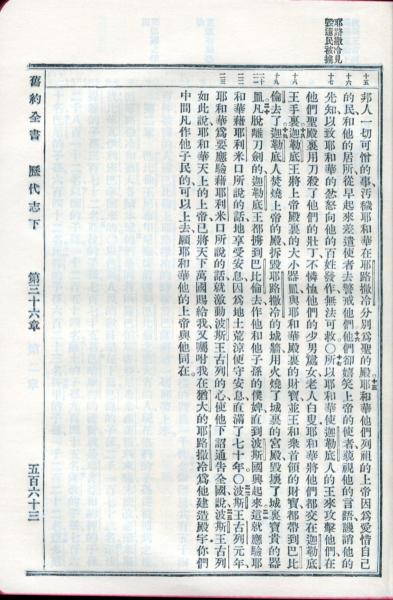 耶路撒冷見
毀遺民被擄
十五
十六
十七
十八
十九
二十
二一
二二
二三
邦人一切可憎的事汚穢耶和華在耶路撒冷分別爲聖的殿耶和華他們列祖的上帝因爲愛惜自己
的民和他的居所從早起來差遣使者去警戒他們他們卻嬉笑上帝的使者藐視他的言語譏誚他的
先知以致耶和華的忿怒向他的百姓發作無法可救〇所以耶和華使迦勒底人的王來攻擊他們在
他們聖殿裏用刀殺了他們的壯丁不憐恤他們的少男處女老人白叟耶和華將他們都交在迦勒底
王手裏迦勒底王將上帝殿裏的大小器皿與耶和華殿裏的財寶並王和衆首領的財寶都帶到巴比
倫去了迦勒底人焚燒上帝的殿拆毀耶路撒冷的城牆用火燒了城裏的宮殿毀壞了城裏寶貴的器
皿凡脫離刀劍的迦勒底王都擄到巴比倫去作他和他子孫的僕婢直到波斯國興起來這就應驗耶
和華藉耶利米口所說的話地享受安息因爲地土荒涼便守安息直滿了七十年〇波斯王古列元年
耶和華爲要應驗藉耶利米口所說的話就激動波斯王古列的心使他下詔通告全國說波斯王古列
如此說耶和華天上的上帝已將天下萬國賜給我又囑咐我在猶大的耶路撒冷爲他建造殿宇你們
中間凡作他子民的可以上去願耶和華他的上帝與他同在。
舊約全書　歷代志下　第三十六章　五百六十三